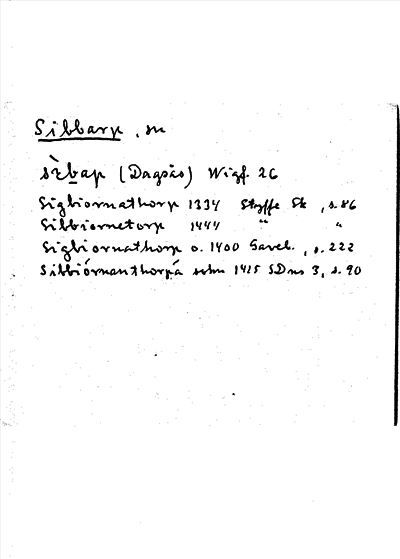 Sibbarp, sn
sìbap (Dagsås) Wigf. 26
Sigbiornathorp 1334 Styffe Sk, s. 86
Sibbiornetorp 1444 " "
Sigbiornathorp o. 1400 Gavel., s. 222
Sibbiórnanthorpá sokn 1415 SDns 3, s. 90